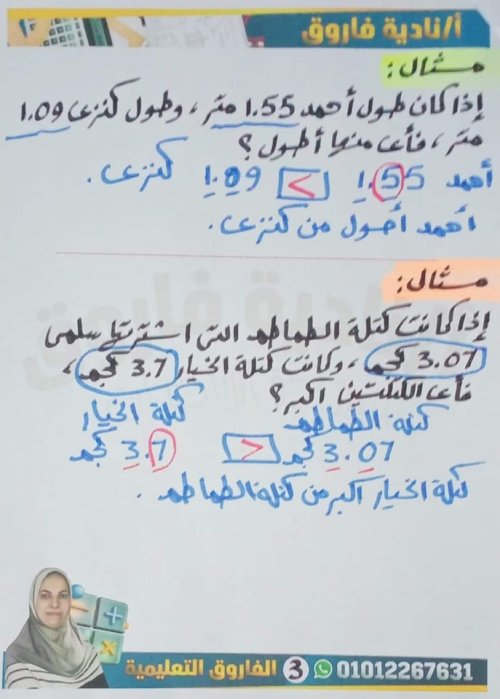 أ/نادية فاروق
مثال:
إذا كان طول أحمد 1.55 متر، وطول كنزى 1.09
متر، فأى منها أطول؟
أحمد 1.55 > 1.09 كنزى.
أحمد أطول من كنزى.
مثال:
إذا كانت كتلة الطماطم التى اشترتها سلمى
3.07 كجم، وكانت كتلة الخيار 3.7 كجم،
فأى الكتلتين أكبر؟
كتلة الطماطم كتلة الخيار
3.07 كجم < 3.7 كجم
كتلة الخيار أكبر من كتلة الطماطم.
الفاروق التعليمية 3 01012267631